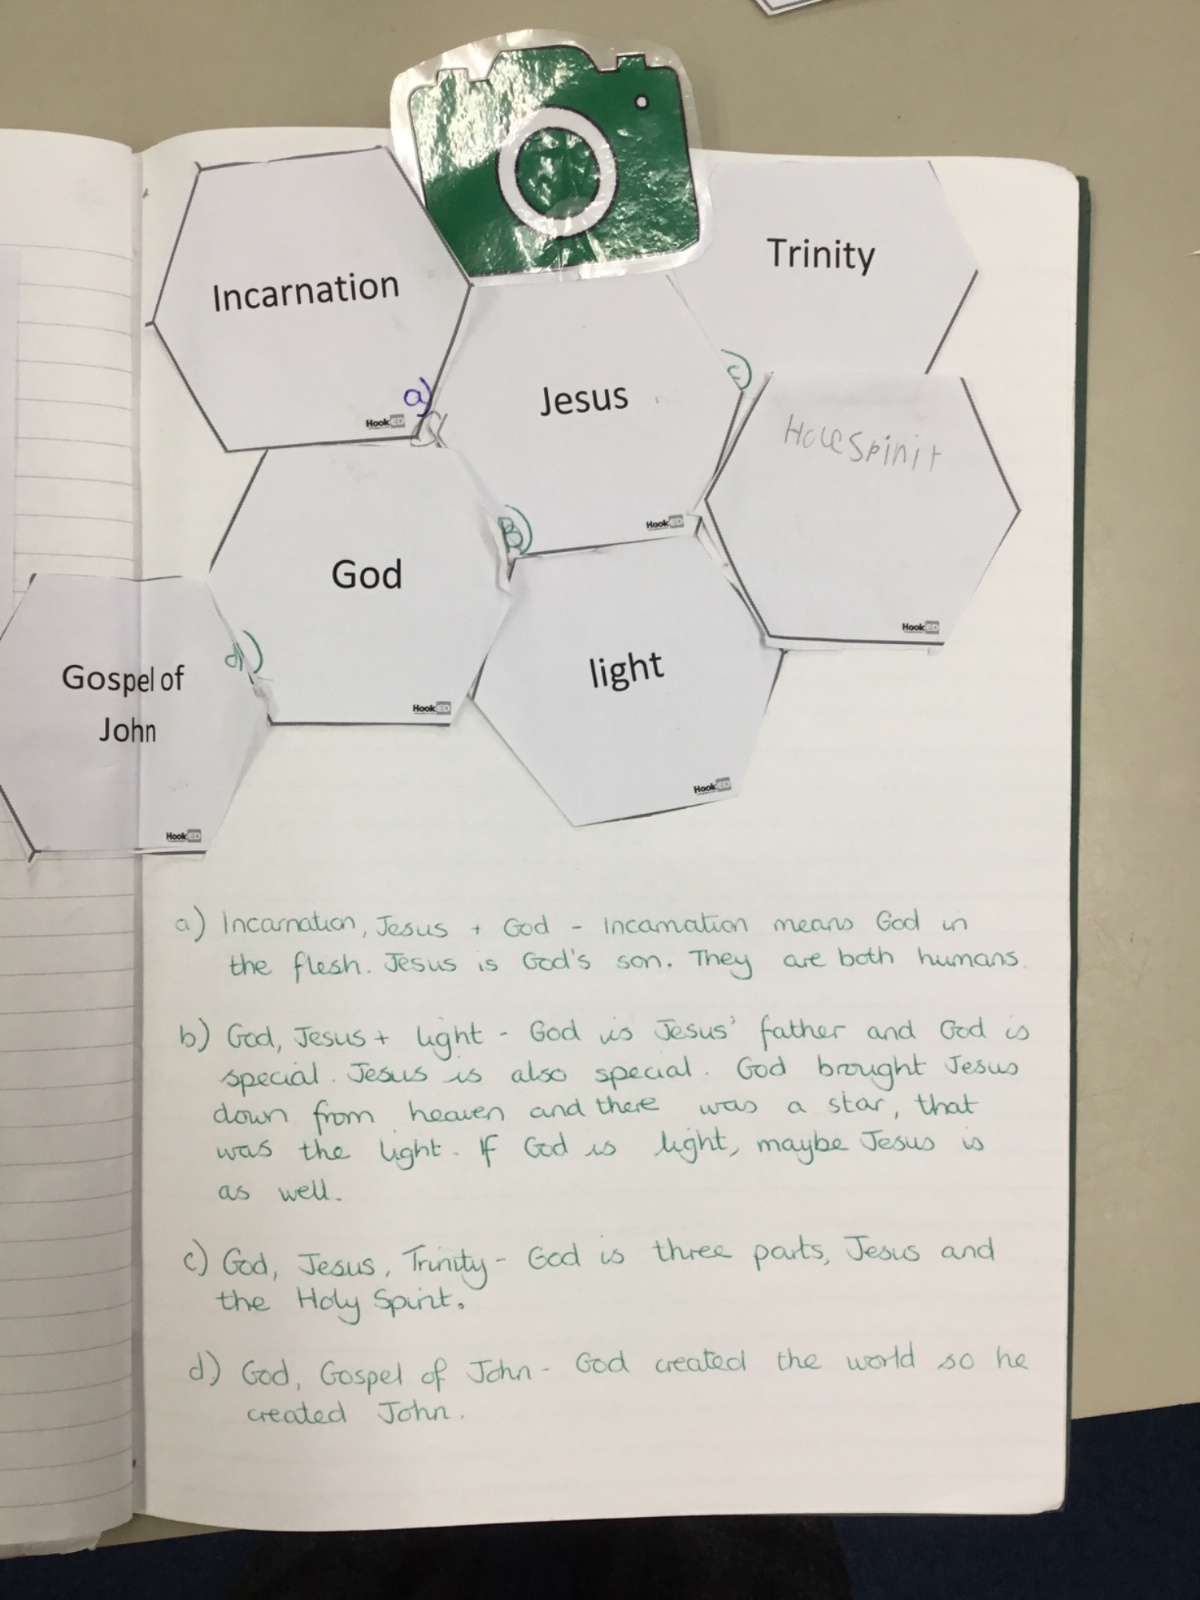 Incarnation
Trinity
Jesus
a)
c)
HookED
Hole Spirit
God
B)
HookED
HookED
light
Gospel of
John
d)
HookED
HookED
HookED
a) Incarnation, Jesus + God - Incarnation means God in
the flesh. Jesus is God's son. They are both humans.
b) God, Jesus + light - God is Jesus' father and God is
special. Jesus is also special. God brought Jesus
down from heaven and there was a star, that
was the light. If God is light, maybe Jesus is
as well.
c) God, Jesus, Trinity - God is three parts, Jesus and
the Holy Spirit.
d) God, Gospel of John - God created the world so he
created John.